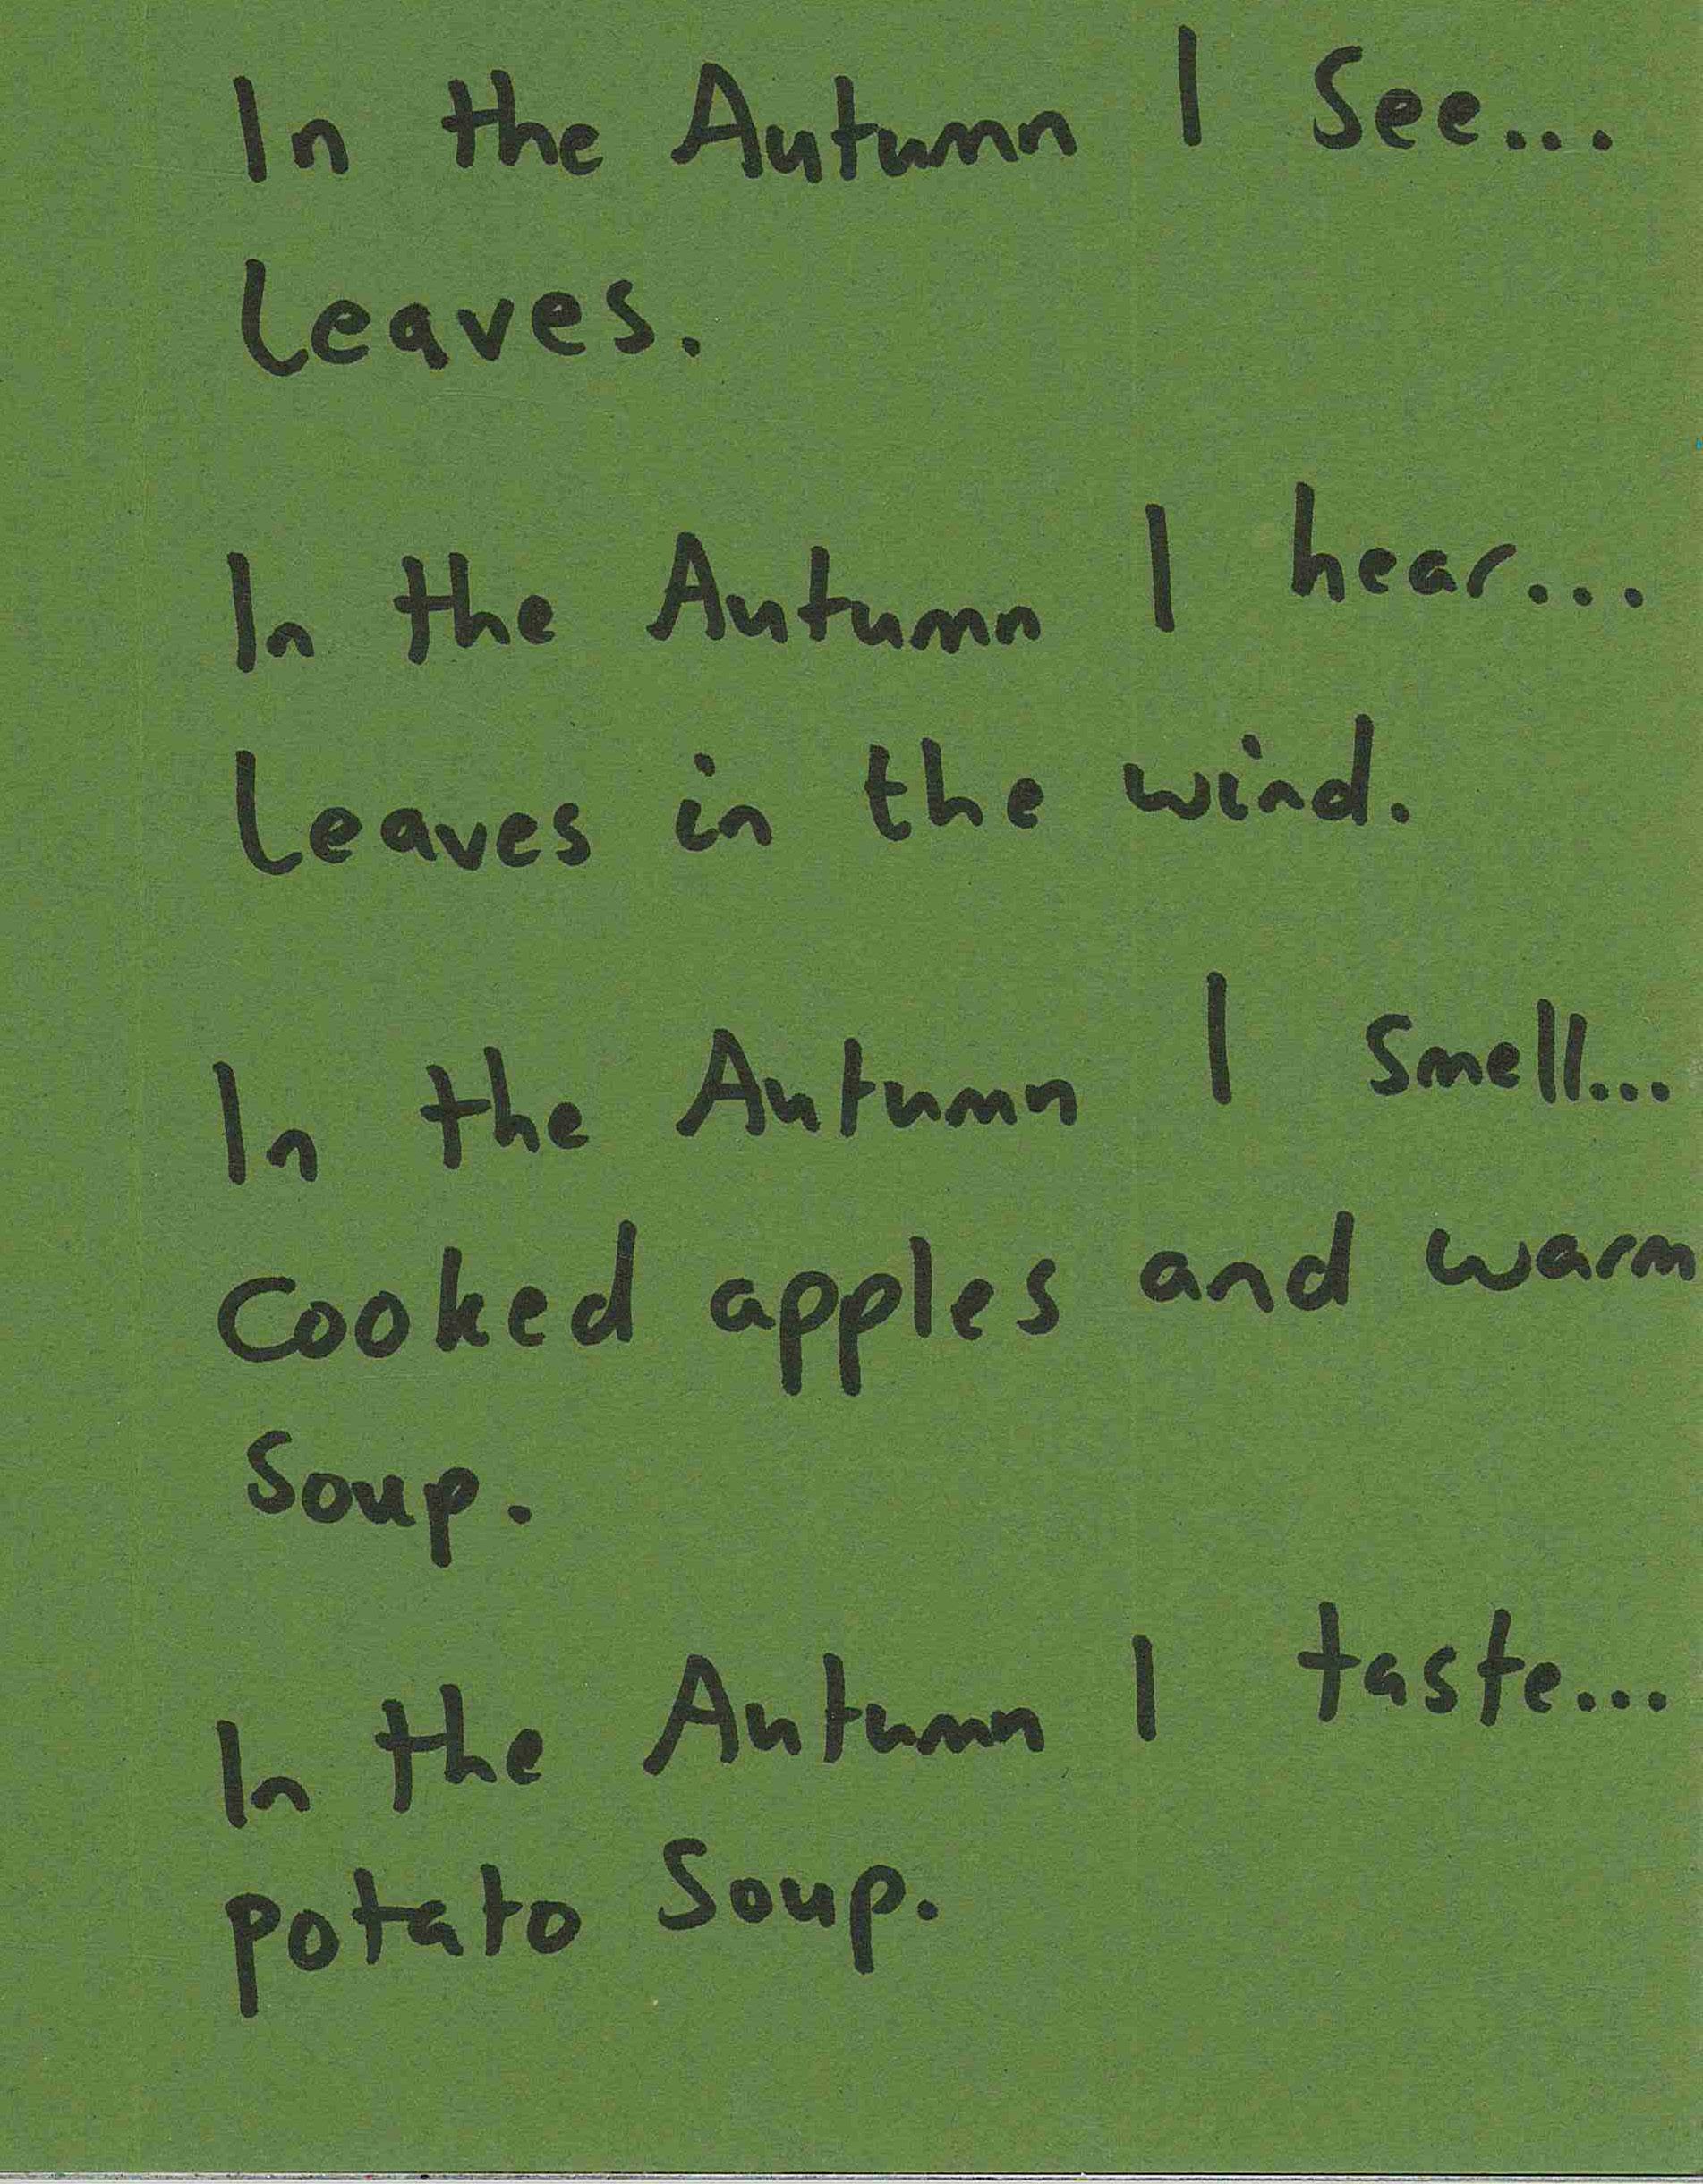 In the Autumn I see...
leaves.
In the Autumn I hear...
leaves in the wind.
In the Autumn I smell...
cooked apples and warm
soup.
In the Autumn I taste...
potato soup.